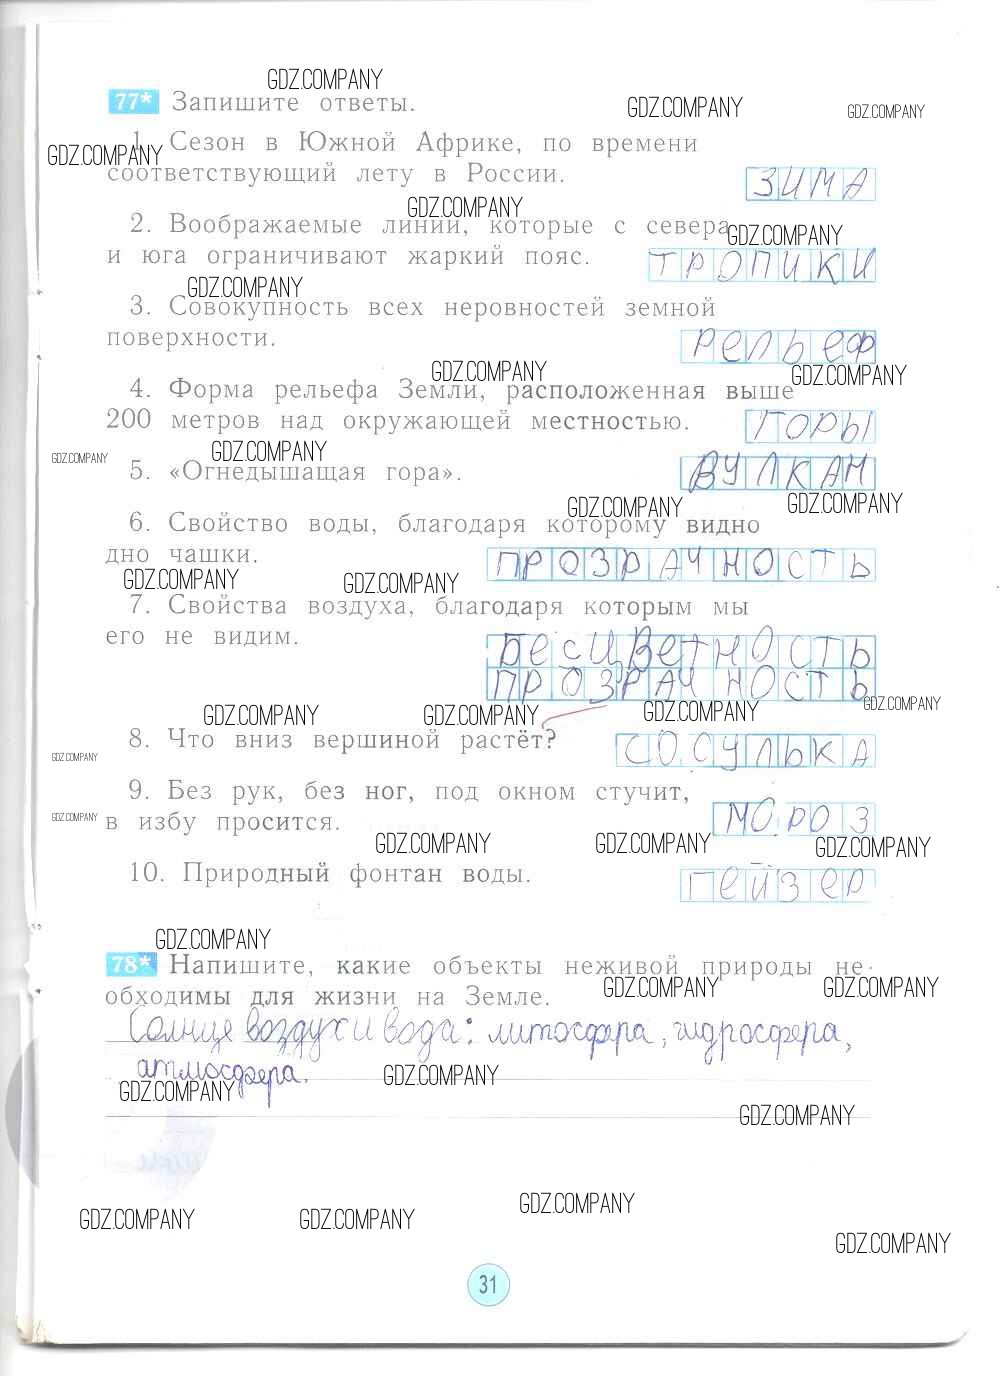 GDZ.COMPANY
77* Запишите ответы.
GDZ.COMPANY
GDZ.COMPANY
1. Сезон в Южной Африке, по времени
GDZ.COMPANY
соответствующий лету в России.
ЗИМА
GDZ.COMPANY
2. Воображаемые линии, которые с севера
GDZ.COMPANY
и юга ограничивают жаркий пояс.
ТРОПИКИ
GDZ.COMPANY
3. Совокупность всех неровностей земной
поверхности.
РеЛЬеф
GDZ.COMPANY
GDZ.COMPANY
4. Форма рельефа Земли, расположенная выше
200 метров над окружающей местностью.
ГОРЫ
GDZ.COMPANY
GDZ.COMPANY
5. «Огнедышащая гора».
ВУЛКАН
GDZ.COMPANY
GDZ.COMPANY
6. Свойство воды, благодаря которому видно
дно чашки.
ПРОЗРАЧНОСТЬ
GDZ.COMPANY
GDZ.COMPANY
7. Свойства воздуха, благодаря которым мы
его не видим.
БесцВетНОСТЬ
ПРОЗРАЧНОСТЬ
GDZ.COMPANY
GDZ.COMPANY
GDZ.COMPANY
GDZ.COMPANY
8. Что вниз вершиной растёт?
СОСУЛЬКА
GDZ.COMPANY
9. Без рук, без ног, под окном стучит,
GDZ.COMPANY
в избу просится.
МОРОЗ
GDZ.COMPANY
GDZ.COMPANY
GDZ.COMPANY
10. Природный фонтан воды.
ГЕЙЗЕР
GDZ.COMPANY
78* Напишите, какие объекты неживой природы не-
GDZ.COMPANY
GDZ.COMPANY
обходимы для жизни на Земле.
Солнце воздух и вода: литосфера, гидросфера,
атмосфера.
GDZ.COMPANY
GDZ.COMPANY
GDZ.COMPANY
GDZ.COMPANY
GDZ.COMPANY
GDZ.COMPANY
GDZ.COMPANY
31